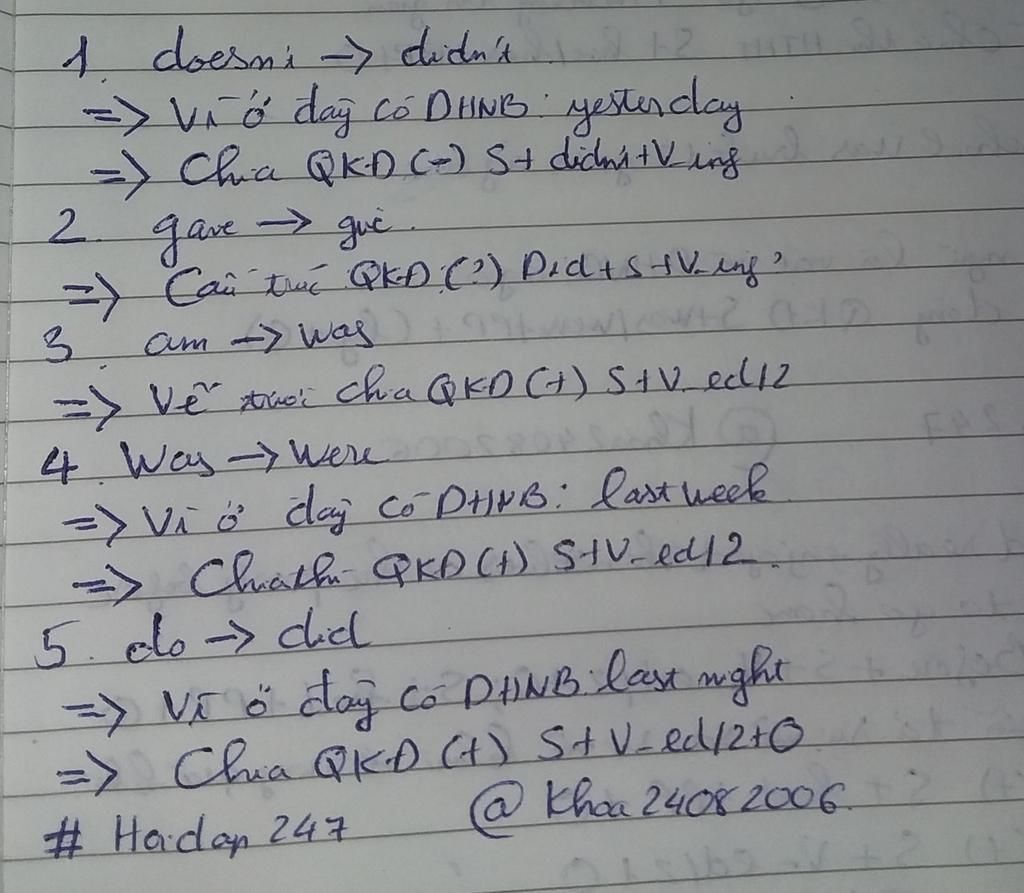 1. doesn't → didn't
=> Vì ở đây có DHNB: yesterday
=> Chia QKD (-) S + didn't + V_ing
2. gave → give.
=> Cấu trúc QKD (?) Did + S + V_ing?
3. am → was
=> Vế trước chia QKD (+) S + V_ed/2
4. Was → Were
=> Vì ở đây có DHNB: last week
=> Chia thì QKD (+) S + V_ed/2.
5. do → did
=> Vì ở đây có DHNB: last night
=> Chia QKD (+) S + V_ed/2 + O
# Hoidap 247 @ Khoa 24082006.